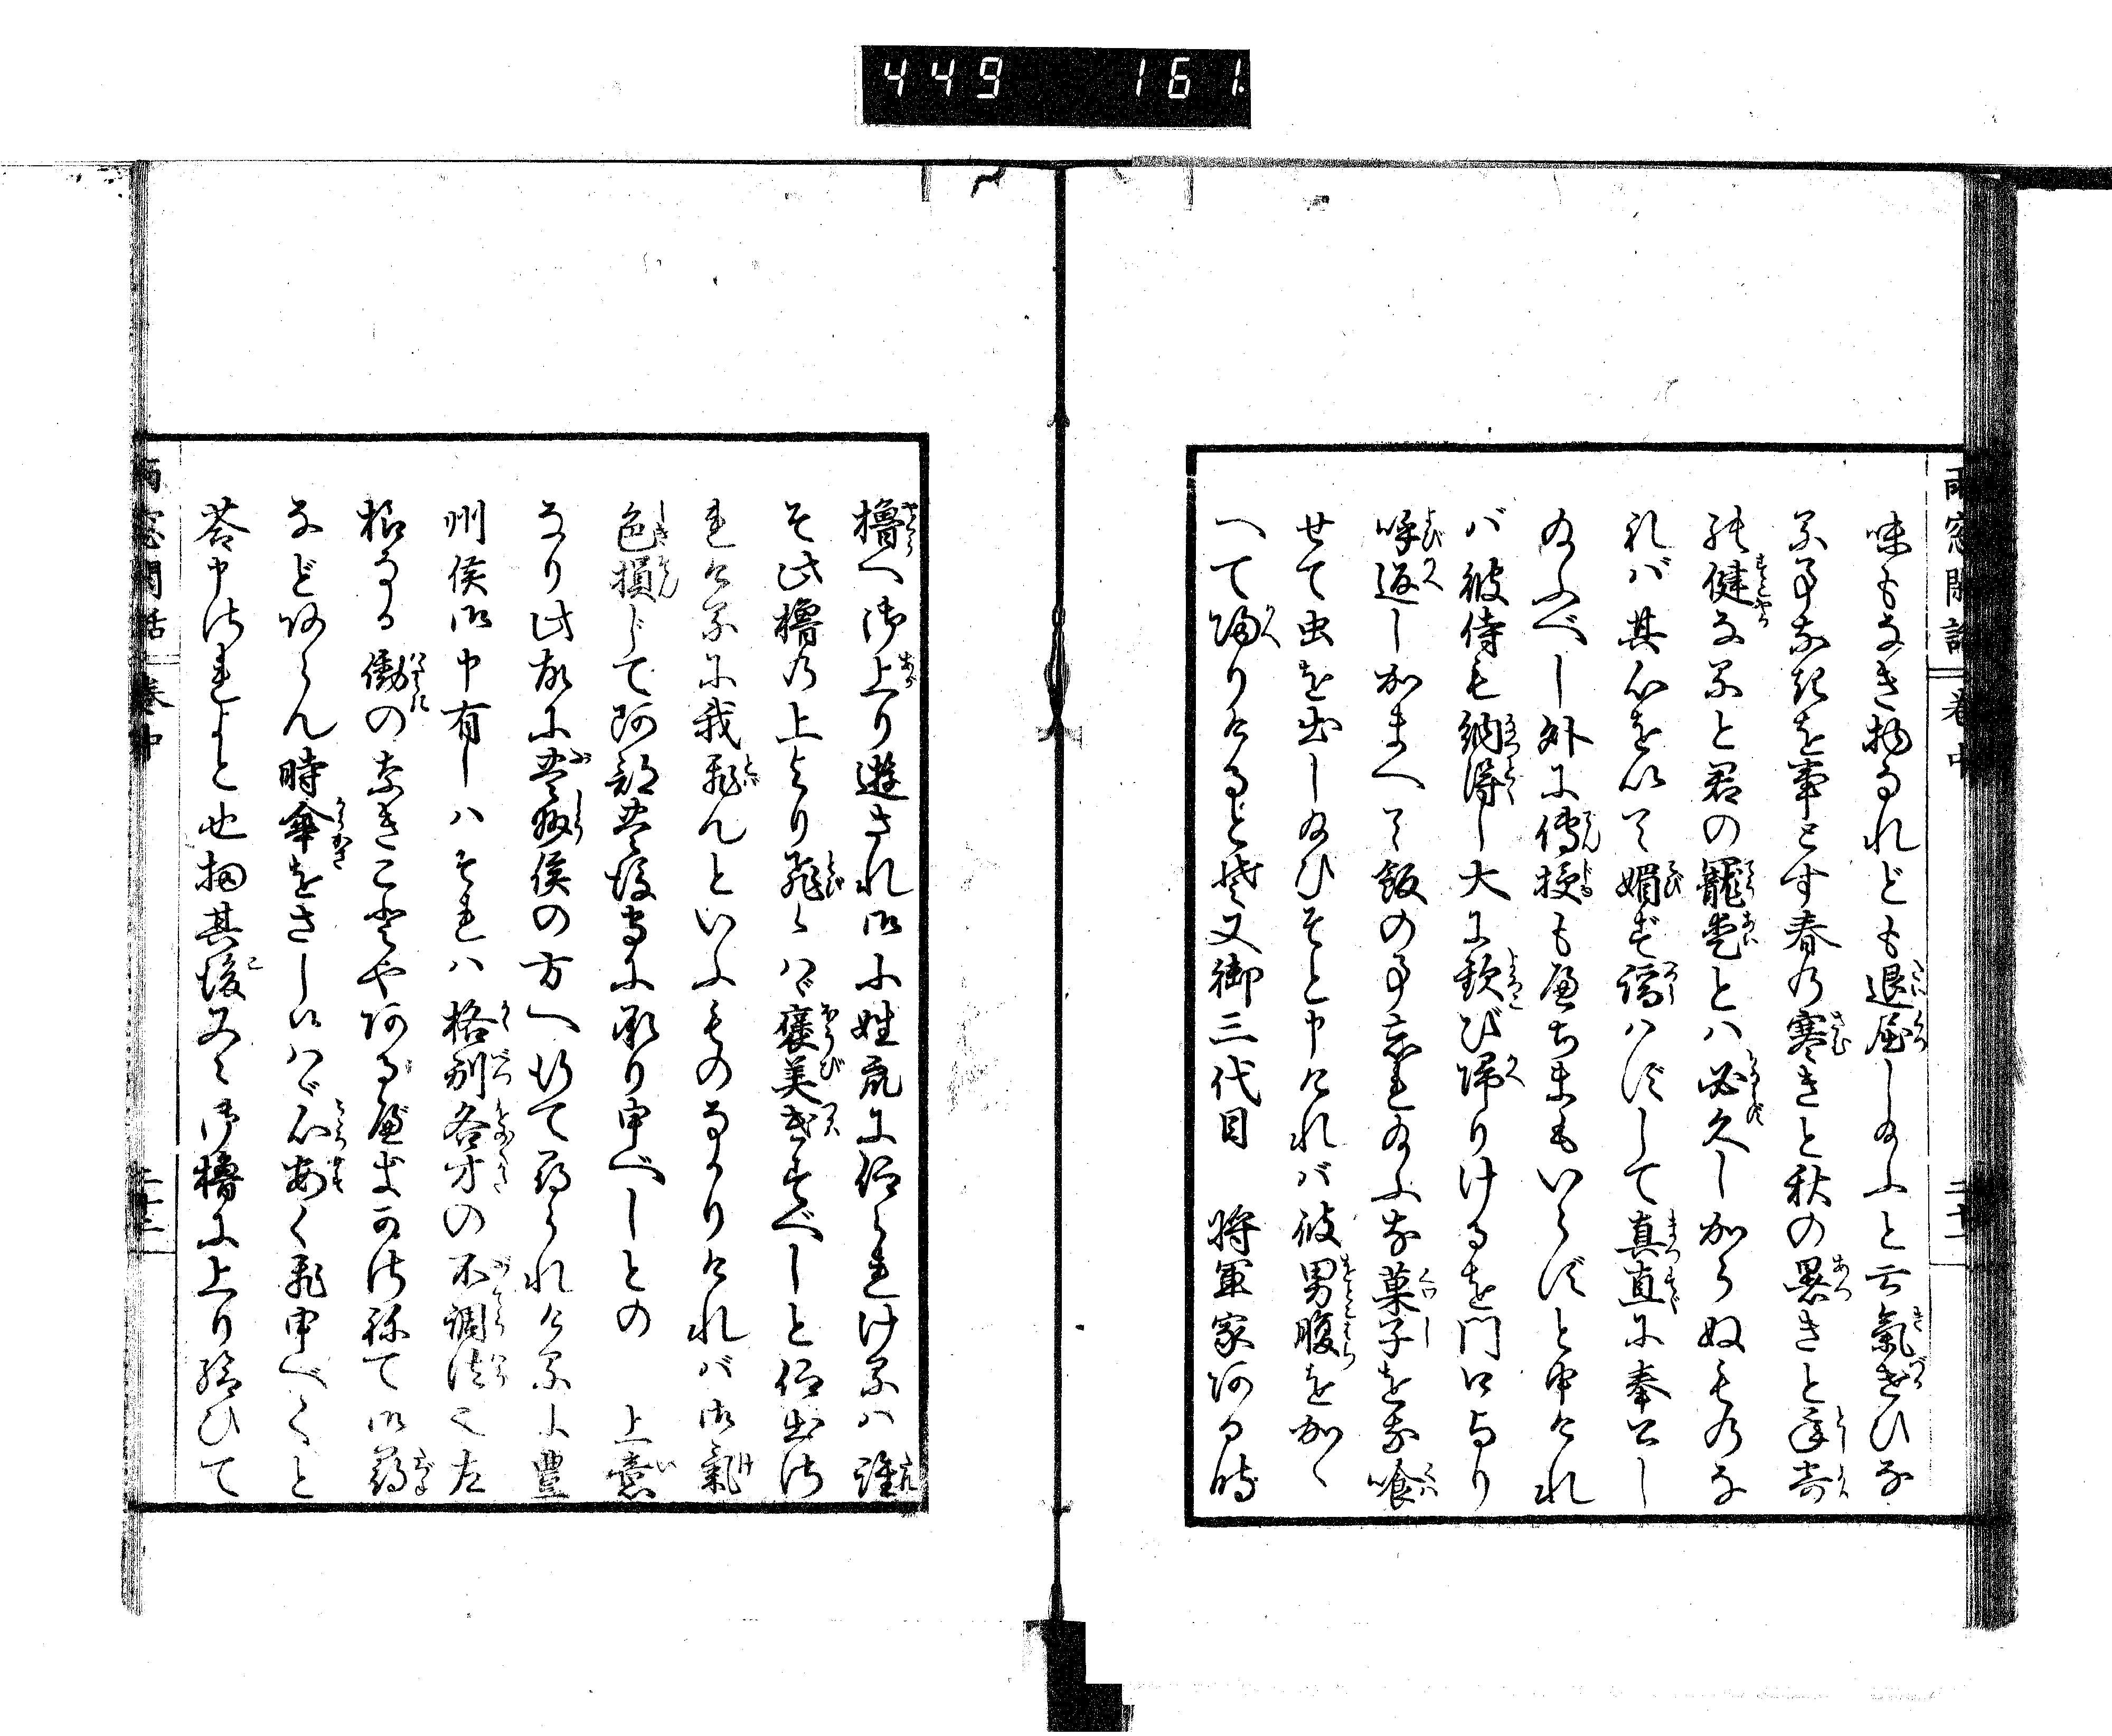 449 161
雨窓閑話 巻中
味もなき物なれども退屈し給ふと云氣遣ひな
る事なきを事とす春の寒きと秋の暑きと年寄
の健なると君の寵愛とは必久しからぬものな
れバ其心を以て媚ず諂ハずして真直に奉公し
給ふべし外に傳授も何もいらずと申けれ
バ彼侍も納得し大に歓び帰りけるを門口より
呼返しかまへて飯の事忘れ給ふな菓子をな喰
せて虫を出し給ひそと申けれバ彼男腹をかゝ
へて帰りけると夫又御三代目 将軍家ある時
櫓へ御上り遊され御小姓衆に仰られけるハ誰
そ此櫓の上より飛ハゞ褒美遣すべしと仰出さ
れけるに我飛んといふものなかりけれバ御氣
色損じて阿部豊後守に承り申べしとの 上意
なり此故に豊後侯の方へ行て尋られけるに豊
州侯御申有しハそれハ格別各方の不調法也左
様なる働のなきことやある何とか被成て御尋
などあらん時傘をさし候ハゞ心安く飛申べくと
答申されよと也扨其後又々御櫓に上り給ひて
雨窓閑話 巻中